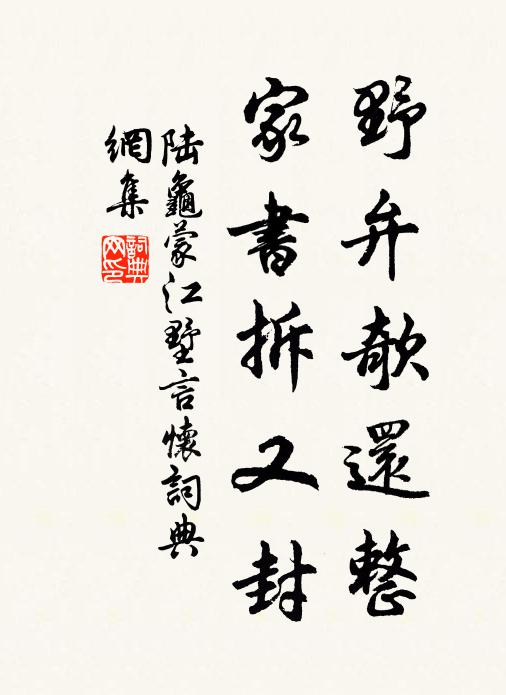 野弁欹還整
家書拆又封
陸龜蒙江墅言懷詞典
網集
詞典
网印